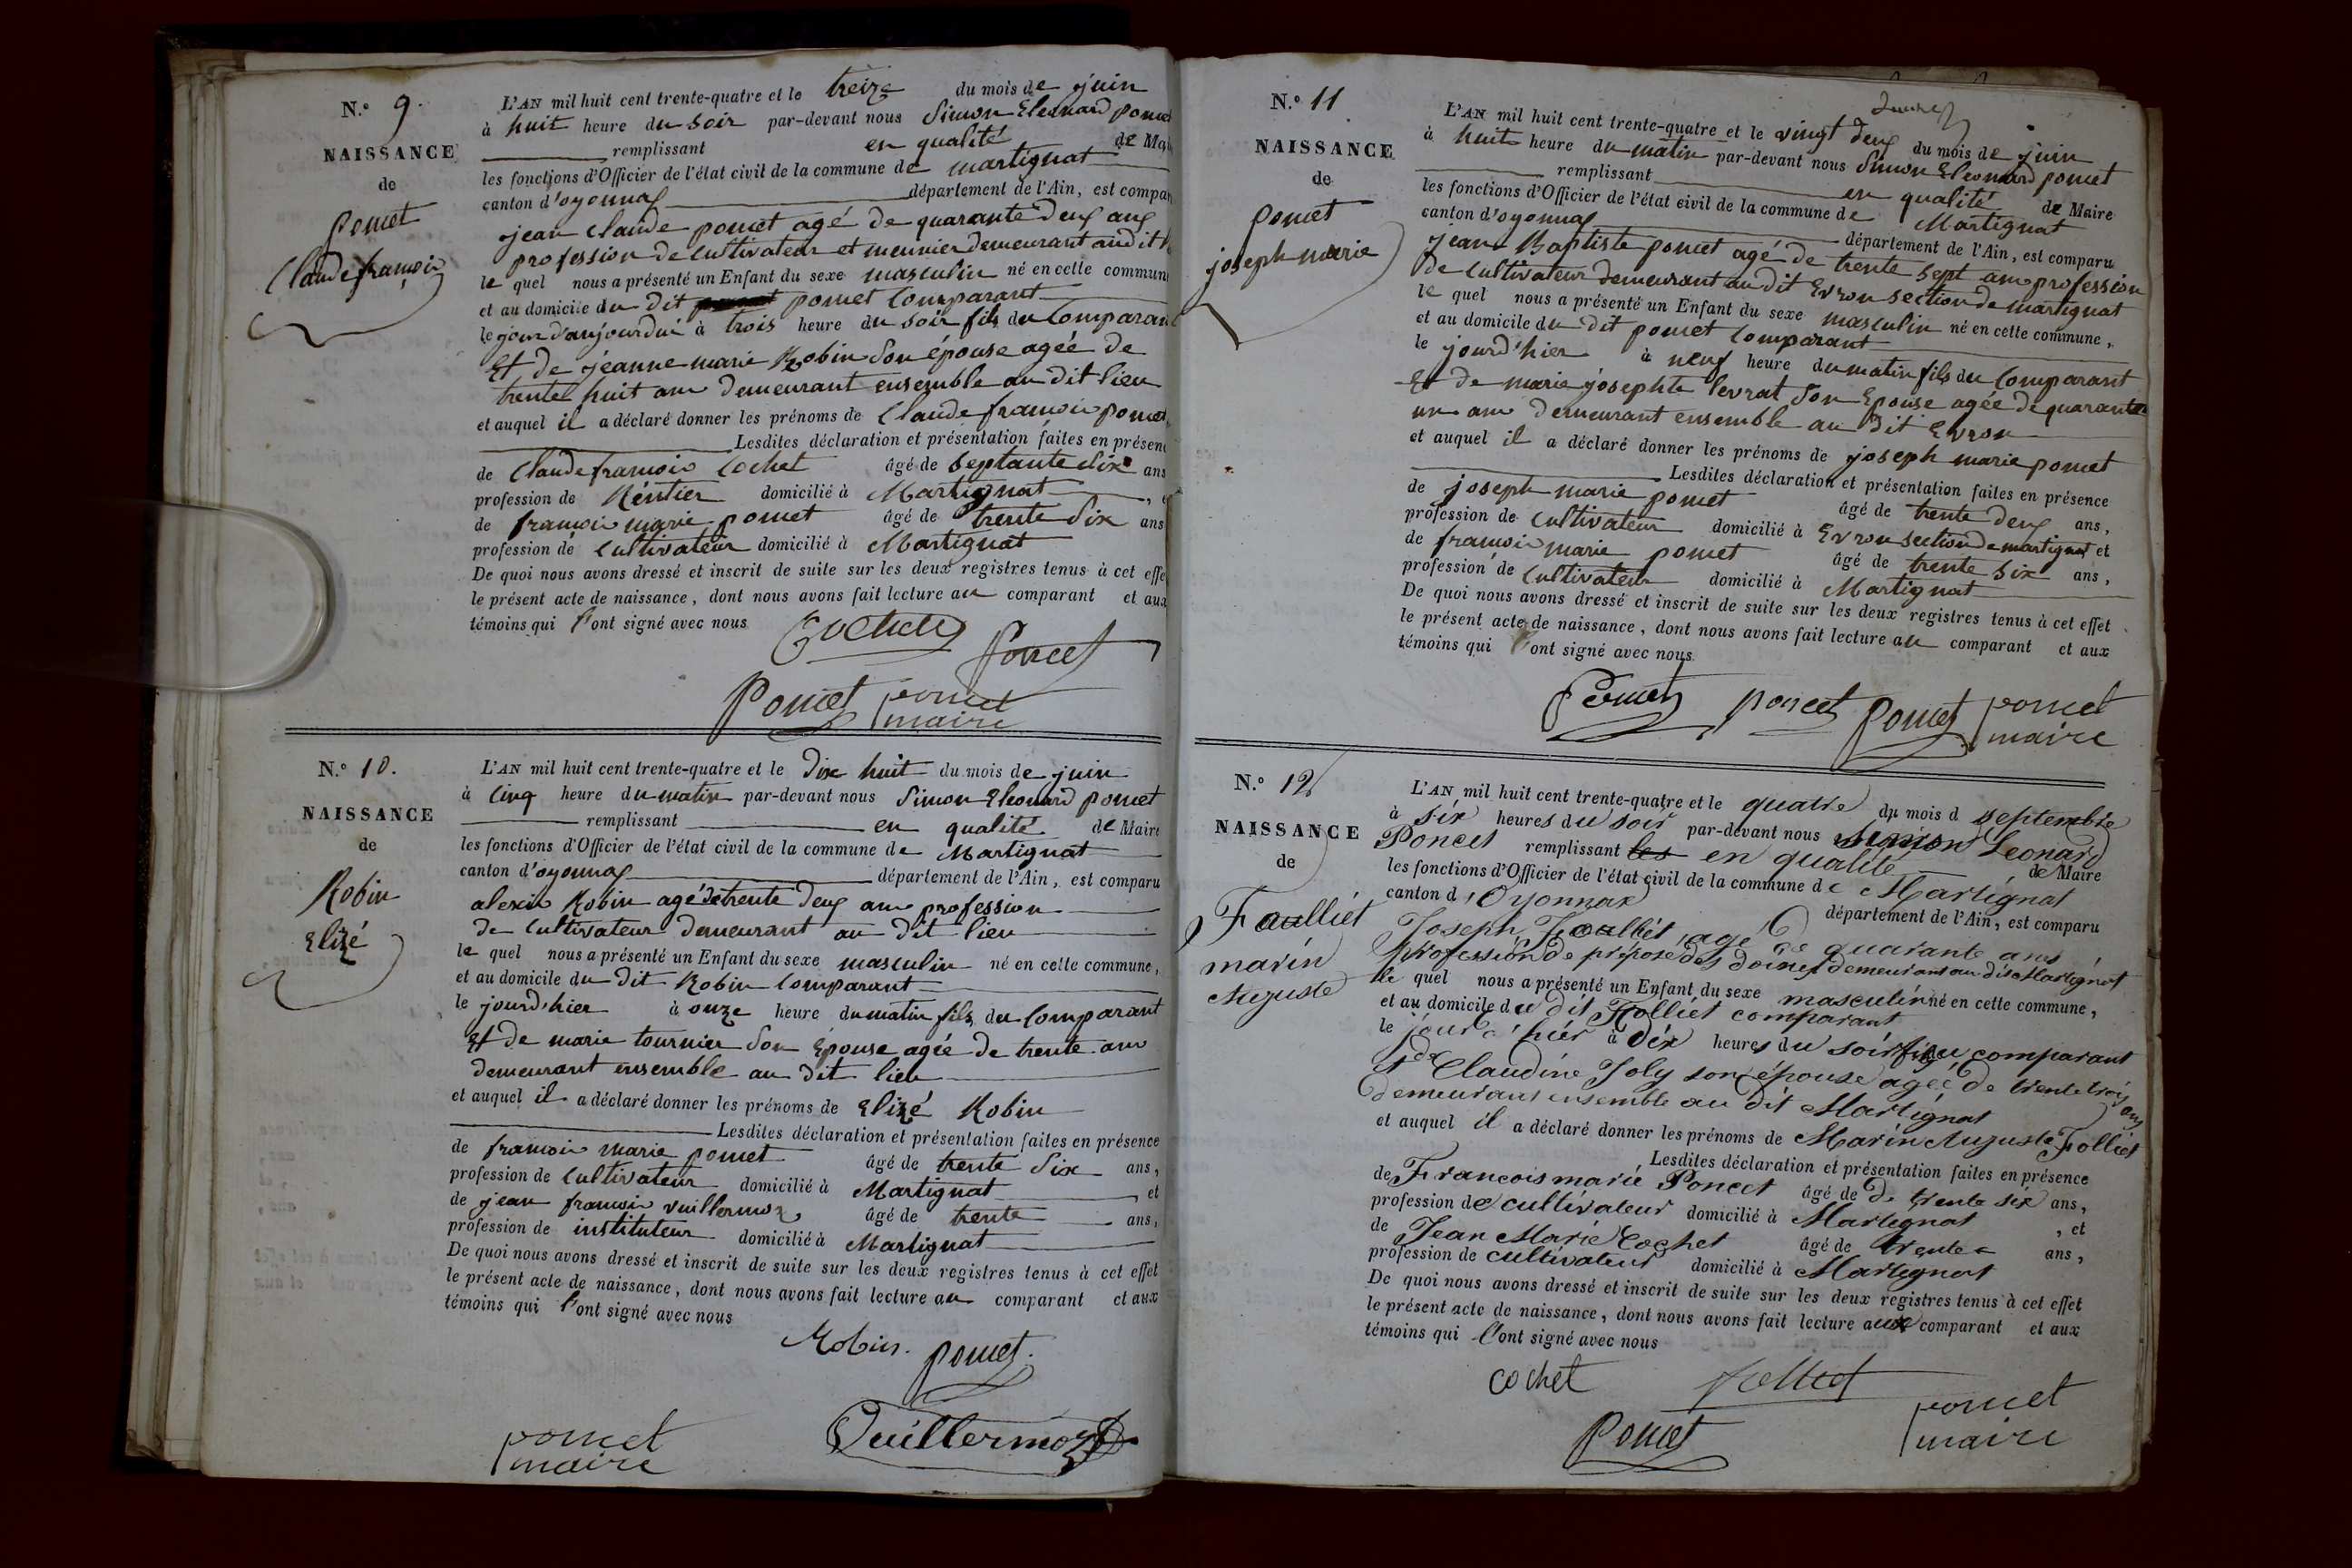 N.º 9.
NAISSANCE
de
poncet
Claude françois
L'AN mil huit cent trente-quatre et le treize du mois de juin
à huit heure du soir par-devant nous Simon Eleonard poncet
remplissant en qualité de Maire
les fonctions d'Officier de l'état civil de la commune de martignat
canton d'oyonnax département de l'Ain, est compar
jean claude poncet agé de quarante deux ans
profession de cultivateur et meunier demeurant audit
le quel nous a présenté un Enfant du sexe masculin né en cette commune
et au domicile du dit poncet Comparant
le jour d'aujourdui à trois heure du soir fils du Comparant
Et de jeanne marie Robin son épouse agée de
trente huit ans demeurant ensemble au dit lieu
et auquel il a déclaré donner les prénoms de Claude françois poncet
Lesdites déclaration et présentation faites en présenc
de Claude françois Cochet âgé de septante six ans
profession de Réntier domicilié à Martignat, e
de françois marie poncet âgé de trente six ans
profession de cultivateur domicilié à Martignat
De quoi nous avons dressé et inscrit de suite sur les deux registres tenus à cet effe
le présent acte de naissance, dont nous avons fait lecture au comparant et aux
témoins qui l'ont signé avec nous
Cochet
Poncet
Poncet poncet
maire
N.º 10.
NAISSANCE
de
Robin
Elizé
L'AN mil huit cent trente-quatre et le Dix huit du mois de juin
à cinq heure du matin par-devant nous Simon Eleonard poncet
remplissant en qualité de Maire
les fonctions d'Officier de l'état civil de la commune de Martignat
canton d'oyonnax département de l'Ain, est comparu
alexis Robin agé de trente deux ans profession
de cultivateur demeurant au dit lieu
le quel nous a présenté un Enfant du sexe masculin né en cette commune,
et au domicile du dit Robin Comparant
le jourd'hier à onze heure du matin fils du Comparant
Et de marie tournier son Épouse agée de trente ans
demeurant ensemble au dit lieu
et auquel il a déclaré donner les prénoms de Elizé Robin
Lesdites déclaration et présentation faites en présence
de françois marie poncet âgé de trente six ans,
profession de cultivateur domicilié à Martignat, et
de jean françois vuillermoz âgé de trente ans,
profession de instituteur domicilié à Martignat
De quoi nous avons dressé et inscrit de suite sur les deux registres tenus à cet effet
le présent acte de naissance, dont nous avons fait lecture au comparant et aux
témoins qui l'ont signé avec nous
Robin. poncet.
poncet Vuillermoz
maire
N.º 11
NAISSANCE
de
poncet
joseph marie
L'AN mil huit cent trente-quatre et le vingt deux du mois de juin
à huit heure du matin par-devant nous Simon Eleonard poncet
remplissant en qualité de Maire
les fonctions d'Officier de l'état civil de la commune de Martignat
canton d'oyonnax département de l'Ain, est comparu
jean Baptiste poncet agé de trente sept ans profession
de cultivateur demeurant au dit Evron section de martignat
le quel nous a présenté un Enfant du sexe masculin né en cette commune,
et au domicile du dit poncet Comparant
le jourd'hier à neuf heure du matin fils du Comparant
Et de marie josephte levrat son Epouse agée de quarante
un ans demeurant ensemble au dit Evron
et auquel il a déclaré donner les prénoms de joseph marie poncet
Lesdites déclaration et présentation faites en présence
de joseph marie poncet âgé de trente deux ans,
profession de cultivateur domicilié à Evron section de martignat et
de françois marie poncet âgé de trente six ans,
profession de cultivateur domicilié à Martignat
De quoi nous avons dressé et inscrit de suite sur les deux registres tenus à cet effet
le présent acte de naissance, dont nous avons fait lecture au comparant et aux
témoins qui l'ont signé avec nous
Poncet poncet Poncet poncet
maire
N.º 12
NAISSANCE
de
Foulliet
marin
Auguste
L'AN mil huit cent trente-quatre et le quatre du mois d septembre
à six heures du soir par-devant nous Simon Leonard
Poncet remplissant les en qualité de Maire
les fonctions d'Officier de l'état civil de la commune de Martignat
canton d'Oyonnax département de l'Ain, est comparu
Joseph Foulliet, agé de quarante ans
profession de préposé des doines demeurant au dit Martignat
le quel nous a présenté un Enfant du sexe masculin né en cette commune,
et au domicile du dit Folliet comparant
le jour d'hier à dix heures du soir fils du comparant
et de Claudine Joly son épouse agée de trente trois ans
demeurans ensemble au dit Martignat
et auquel il a déclaré donner les prénoms de Marin Auguste Folliet
Lesdites déclaration et présentation faites en présence
de Francois marie Poncet âgé de de trente six ans,
profession de cultivateur domicilié à Martignat, et
de Jean Marie Cochet âgé de trente ans,
profession de cultivateur domicilié à Martignat
De quoi nous avons dressé et inscrit de suite sur les deux registres tenus à cet effet
le présent acte de naissance, dont nous avons fait lecture aux comparant et aux
témoins qui l'ont signé avec nous
cochet folliet
Poncet poncet
maire